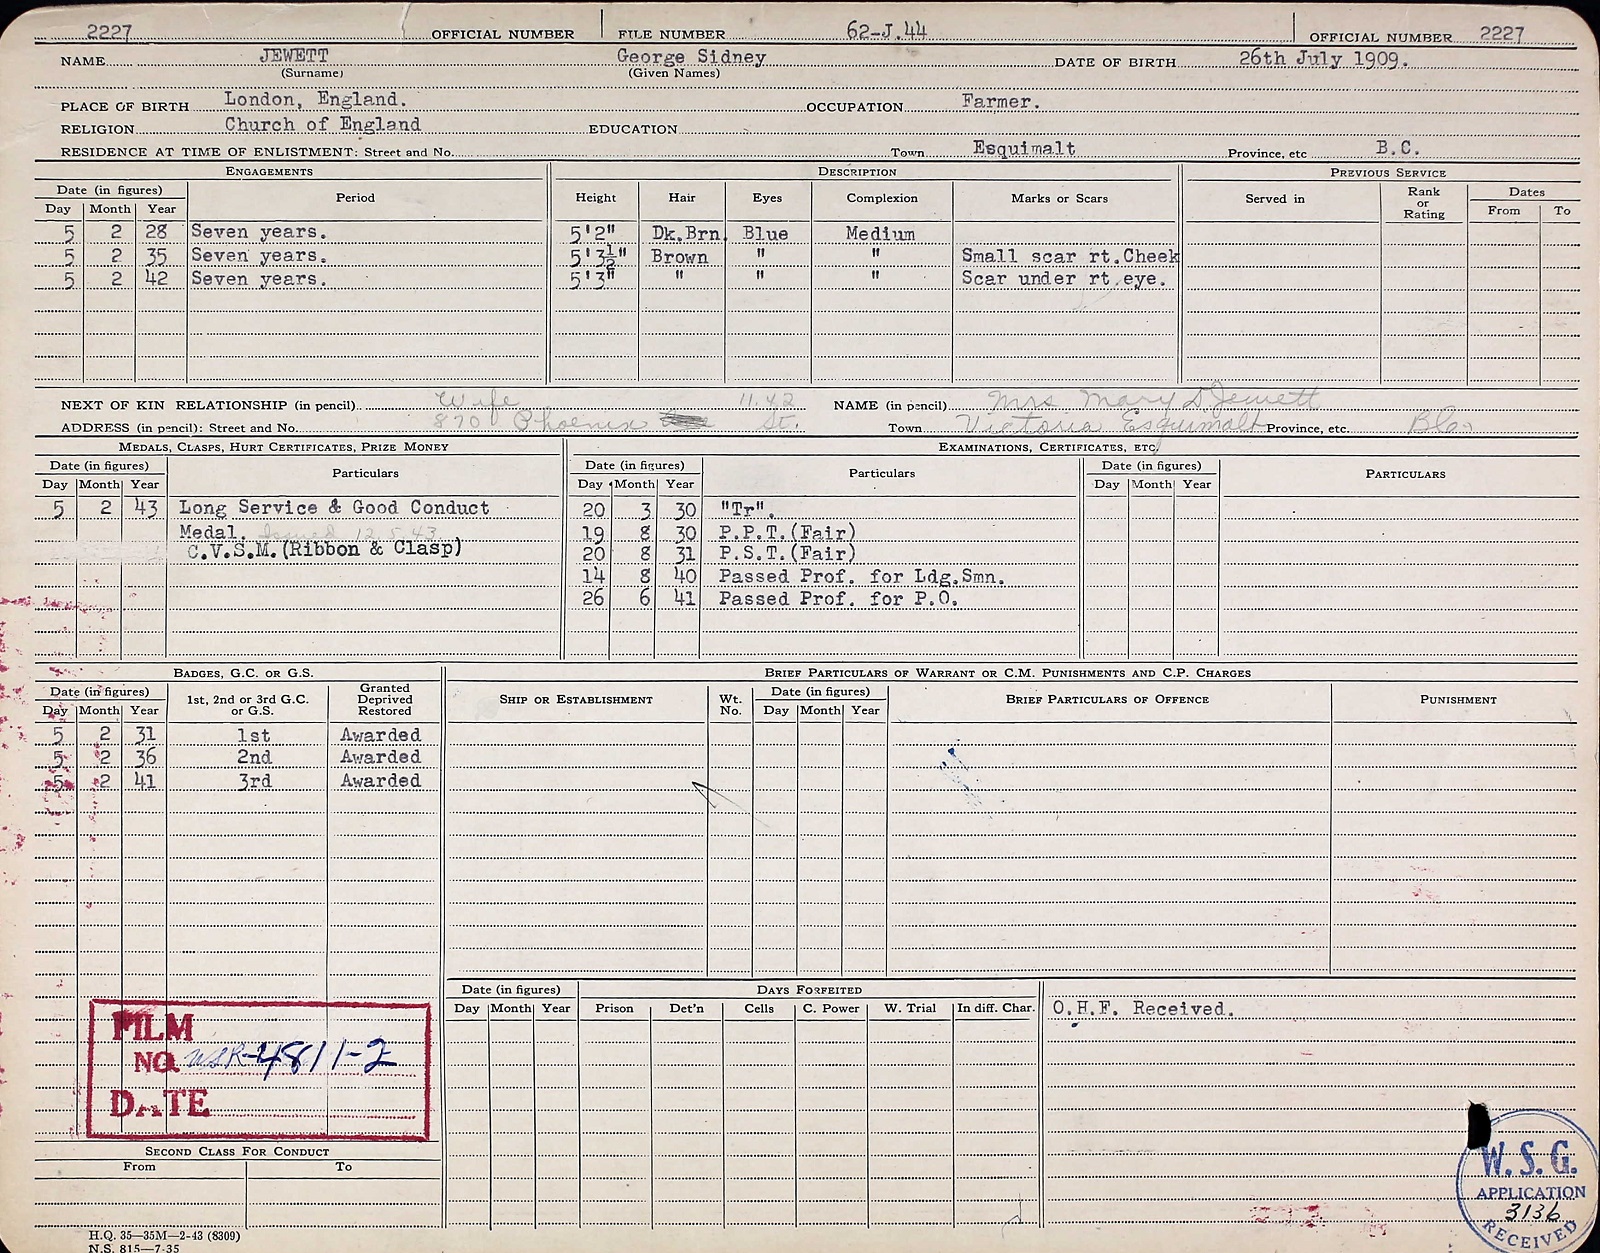 2227 OFFICIAL NUMBER FILE NUMBER 62-J.44 OFFICIAL NUMBER 2227
NAME JEWETT George Sidney DATE OF BIRTH 26th July 1909.
(Surname) (Given Names)
PLACE OF BIRTH London, England. OCCUPATION Farmer.
RELIGION Church of England EDUCATION
RESIDENCE AT TIME OF ENLISTMENT: Street and No. Town Esquimalt Province, etc B.C.
ENGAGEMENTS DESCRIPTION PREVIOUS SERVICE
Date (in figures) Period Height Hair Eyes Complexion Marks or Scars Served in Rank or Rating Dates
Day Month Year From To
5 2 28 Seven years. 5'2" Dk.Brn. Blue Medium
5 2 35 Seven years. 5'3½" Brown " " Small scar rt.Cheek
5 2 42 Seven years. 5'3" " " " Scar under rt.eye.
NEXT OF KIN RELATIONSHIP (in pencil) Wife 11.42 NAME (in pencil) Mrs Mary D Jewett
ADDRESS (in pencil): Street and No. 870 Phoenix St. Town Victoria Esquimalt Province, etc.
MEDALS, CLASPS, HURT CERTIFICATES, PRIZE MONEY EXAMINATIONS, CERTIFICATES, ETC.
Date (in figures) Particulars Date (in figures) Particulars Date (in figures) PARTICULARS
Day Month Year Day Month Year Day Month Year
5 2 43 Long Service & Good Conduct 20 3 30 "Tr".
Medal. Issued 12.5.43 19 8 30 P.P.T.(Fair)
C.V.S.M.(Ribbon & Clasp) 20 8 31 P.S.T.(Fair)
14 8 40 Passed Prof. for Ldg.Smn.
26 6 41 Passed Prof. for P.O.
BADGES, G.C. OR G.S. BRIEF PARTICULARS OF WARRANT OR C.M. PUNISHMENTS AND C.P. CHARGES
Date (in figures) 1st, 2nd or 3rd G.C. or G.S. Granted Deprived Restored SHIP OR ESTABLISHMENT Wt. No. Date (in figures) BRIEF PARTICULARS OF OFFENCE PUNISHMENT
Day Month Year Day Month Year
5 2 31 1st Awarded
5 2 36 2nd Awarded
5 2 41 3rd Awarded
Date (in figures) DAYS FORFEITED
Day Month Year Prison Det'n Cells C. Power W. Trial In diff. Char. O.H.F. Received.
FILM
NO. WSR-4811-2
DATE
SECOND CLASS FOR CONDUCT
From To
W.S.G.
APPLICATION
3136
RECEIVED
H.Q. 35—35M—2-43 (8309)
N.S. 815—7-35